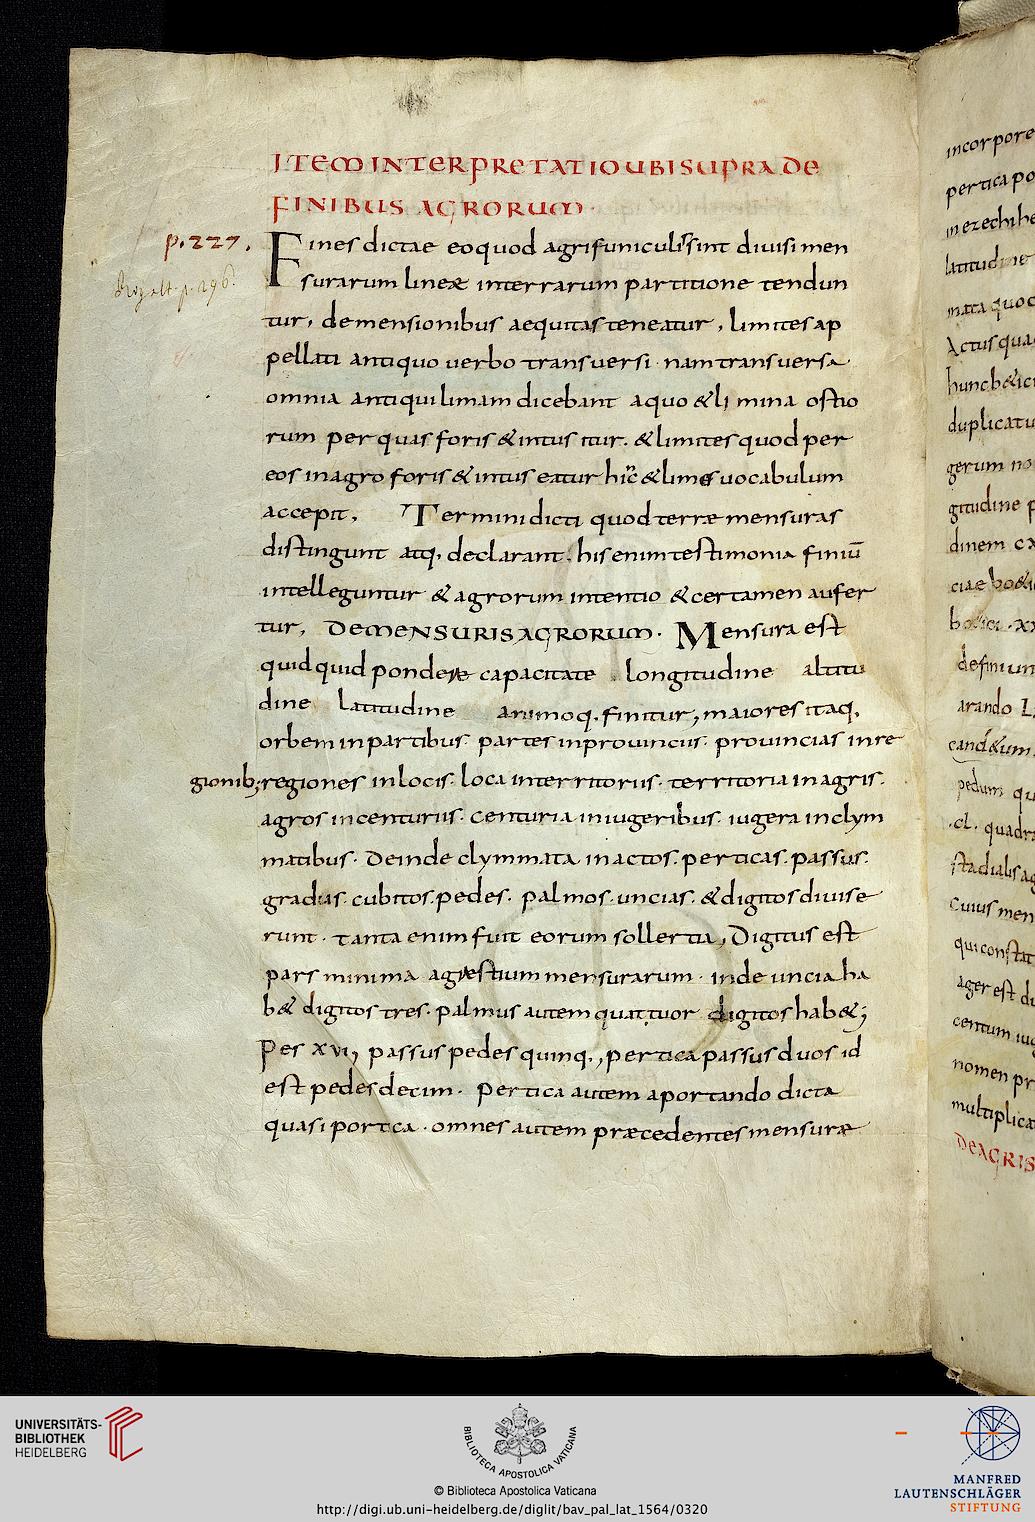 ITEM INTERPRETATIO UBI SUPRA DE
FINIBUS AGRORUM.
p. 227.
Fines dictae eo quod agri funiculis sint diuisi men
surarum lineæ interrarum partitione tendun
tur, demensionibus aequitas teneatur, limites ap
pellati antiquo uerbo transuersi. nam transuersa
omnia antiqui limam dicebant a quo & limina ostio
rum per quas foris & intus itur. & limites quod per
eos in agro foris & intus eatur hic & limes uocabulum
accepit, Termini dicti quod terræ mensuras
distingunt atq, declarant. his enim testimonia finiū
intelleguntur & agrorum intentio & certamen aufer
tur, DE MENSURIS AGRORUM. Mensura est
quidquid pondere capacitate longitudine altitu
dine latitudine animoq, finitur, maiores itaq,
orbem in partibus. partes in prouinciis. prouincias in re
gionib; regiones in locis. loca in territoriis. territoria in agris.
agros in centuriis. centuria in iugeribus. iugera in clym
matibus. Deinde clymmata in actos. perticas. passus.
gradus. cubitos. pedes. palmos. uncias. & digitos diuise
runt. tanta enim fuit eorum sollertia, Digitus est
pars minima agrestium mensurarum. inde uncia ha
b& digitos tres. palmus autem quattuor digitos hab&;
Pes XVI, passus pedes quinq,, pertica passus duos id
est pedes decim. Pertica autem aportando dicta
quasi portica. omnes autem præcedentes mensuræ
incorpore
pertica po
in ezechihe
latitudine
mata quod
Actus qua
hunc b&ici
duplicatu
gerum no
gitudine p
dinem cx
ciae
definiun
arando
cand&um.
pedum qu
.cl. quadra
stadialis ag
Cuius men
qui constat
ager est du
centum iug
nomen pr
multiplica
DE AGRIS
UNIVERSITÄTS-
BIBLIOTHEK
HEIDELBERG
BIBLIOTECA APOSTOLICA VATICANA
© Biblioteca Apostolica Vaticana
http://digi.ub.uni-heidelberg.de/diglit/bav_pal_lat_1564/0320
MANFRED
LAUTENSCHLÄGER
STIFTUNG